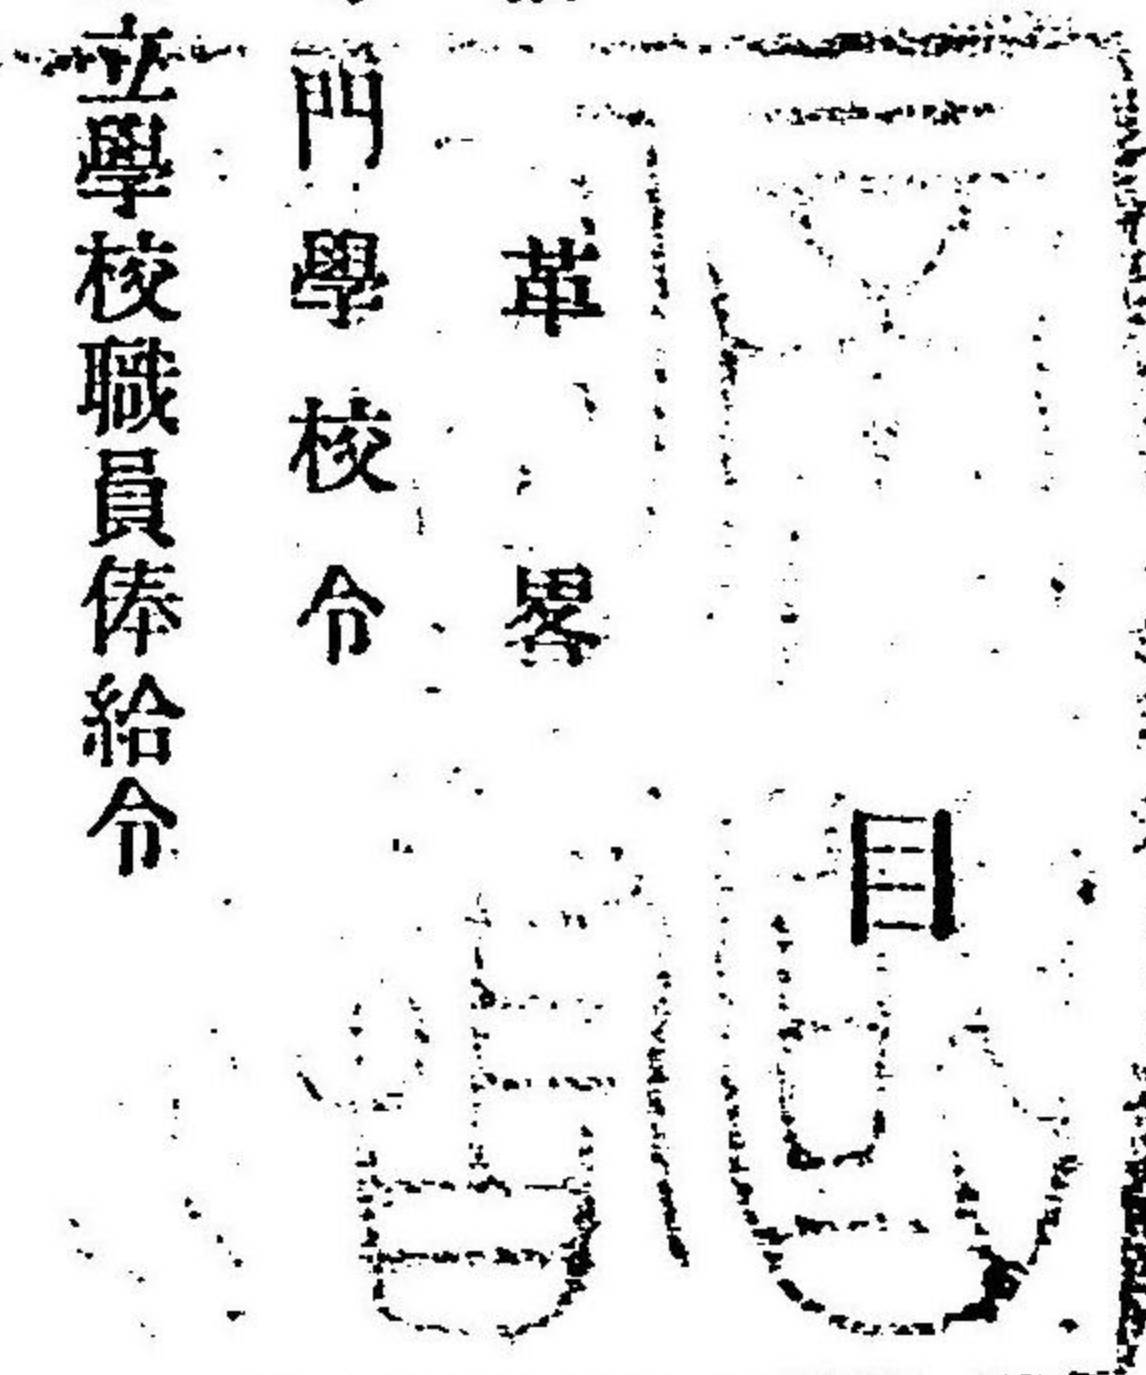 目
革畧
門學校令
立學校職員俸給令